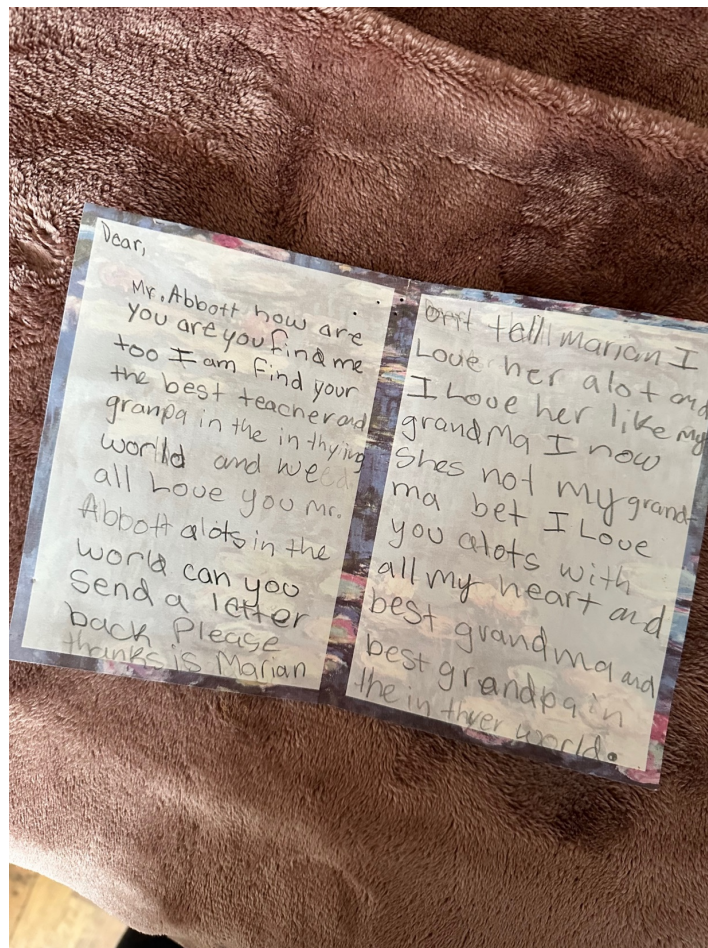 Dear,
Mr. Abbott how are
you are you find me
too I am find your
the best teacher and
granpa in the in thying
world and we
all Love you Mr.
Abbott alots in the
world can you
send a letter
back Please
thanks is Marian
tell marian I
Love her alot and
I Love her like my
grandma I now
shes not my grand
ma bet I Love
you alots with
all my heart and
best grandma and
best grandpa in
the in thyer world.